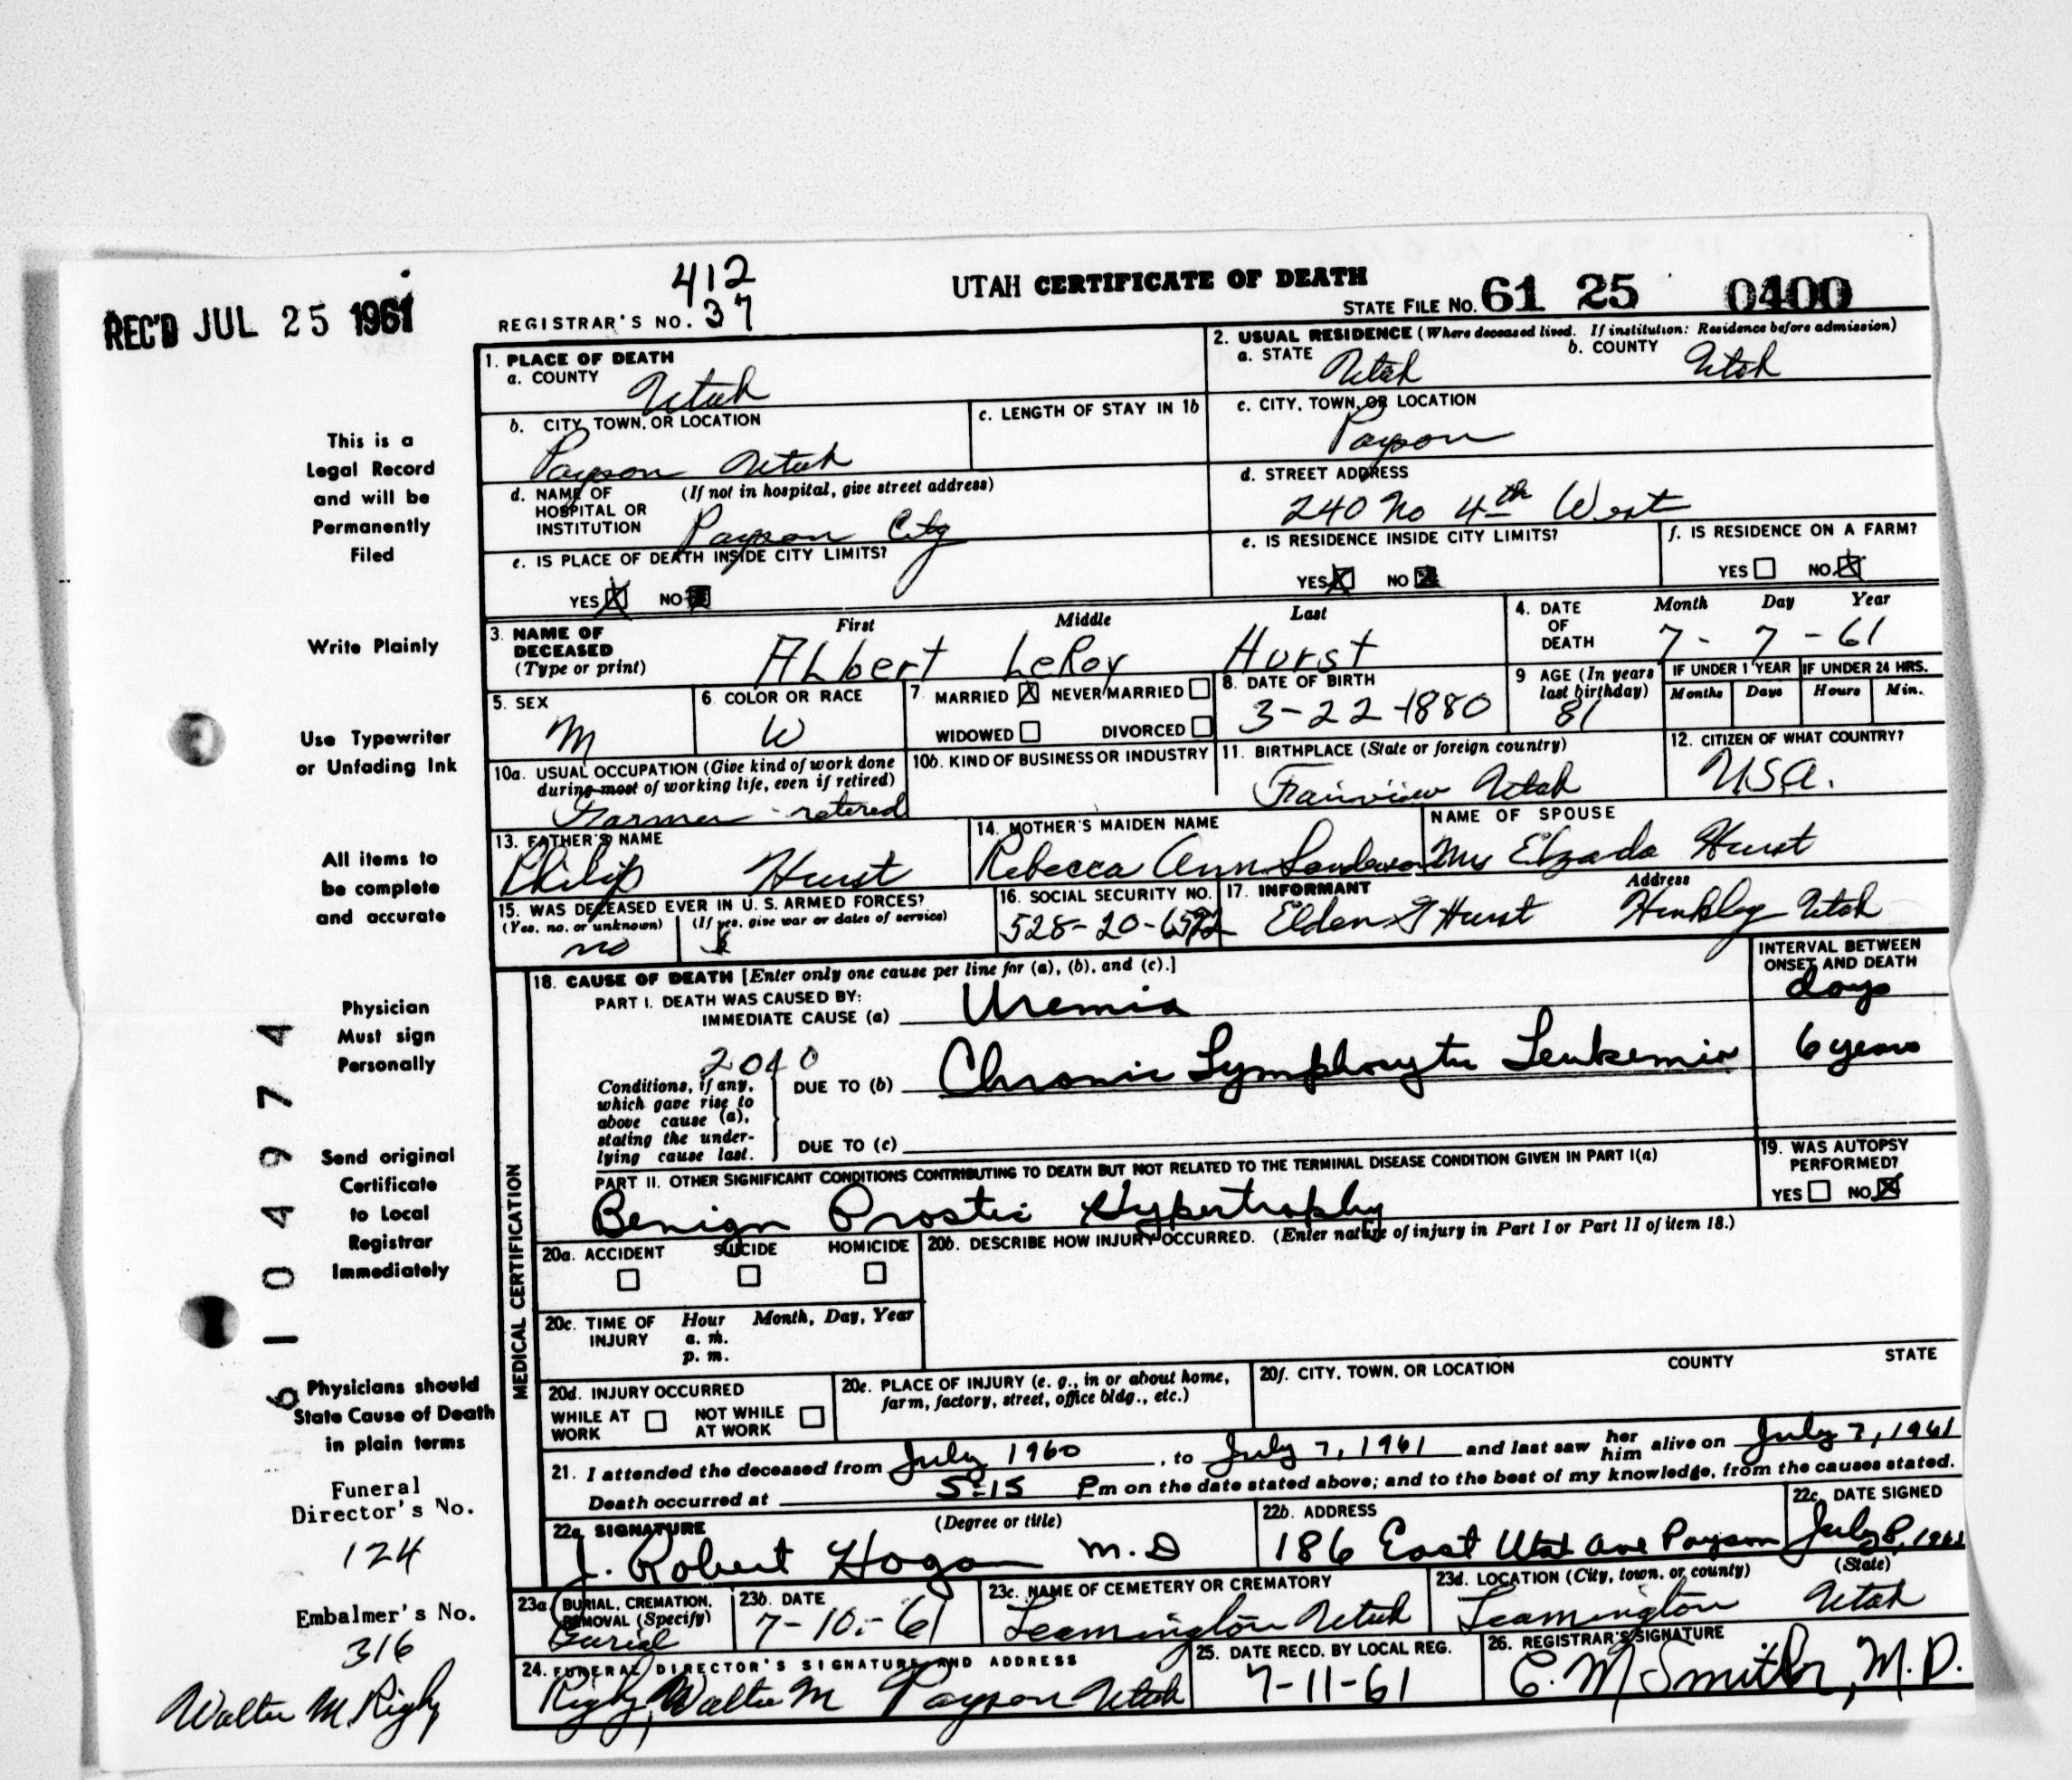 REC'D JUL 25 1961
412
REGISTRAR'S NO. 37
UTAH CERTIFICATE OF DEATH
STATE FILE NO. 61 25 0400
This is a
Legal Record
and will be
Permanently
Filed
Write Plainly
Use Typewriter
or Unfading Ink
All items to
be complete
and accurate
Physician
Must sign
Personally
Send original
Certificate
to Local
Registrar
Immediately
Physicians should
State Cause of Death
in plain terms
6 1 0 4 9 7 4
Funeral
Director's No.
124
Embalmer's No.
316
Walter M. Rigby
1. PLACE OF DEATH
a. COUNTY Utah
b. CITY, TOWN, OR LOCATION
Payson Utah
c. LENGTH OF STAY IN 1b
d. NAME OF HOSPITAL OR INSTITUTION (If not in hospital, give street address)
Payson City
e. IS PLACE OF DEATH INSIDE CITY LIMITS?
YES X NO
2. USUAL RESIDENCE (Where deceased lived. If institution: Residence before admission)
a. STATE Utah b. COUNTY Utah
c. CITY, TOWN, OR LOCATION
Payson
d. STREET ADDRESS
240 No 4th West
e. IS RESIDENCE INSIDE CITY LIMITS?
YES X NO
f. IS RESIDENCE ON A FARM?
YES NO X
3. NAME OF DECEASED (Type or print)
First Middle Last
ALbert LeRoy Hurst
4. DATE OF DEATH Month Day Year
7 - 7 - 61
5. SEX
M
6. COLOR OR RACE
W
7. MARRIED X NEVER MARRIED
WIDOWED DIVORCED
8. DATE OF BIRTH
3-22-1880
9 AGE (In years last birthday)
81
IF UNDER 1 YEAR
Months Days
IF UNDER 24 HRS.
Hours Min.
10a. USUAL OCCUPATION (Give kind of work done
during most of working life, even if retired)
Farmer - retered
10b. KIND OF BUSINESS OR INDUSTRY
11. BIRTHPLACE (State or foreign country)
Fairview Utah
12. CITIZEN OF WHAT COUNTRY?
USA.
13. FATHER'S NAME
Philip Hurst
14. MOTHER'S MAIDEN NAME
Rebecca Ann Sanderson
NAME OF SPOUSE
Mrs Elzada Hurst
15. WAS DECEASED EVER IN U. S. ARMED FORCES?
(Yes, no, or unknown) (If yes, give war or dates of service)
no
16. SOCIAL SECURITY NO.
528-20-6592
17. INFORMANT Address
Elden Hurst Hinkley Utah
18. CAUSE OF DEATH [Enter only one cause per line for (a), (b), and (c).]
INTERVAL BETWEEN
ONSET AND DEATH
PART I. DEATH WAS CAUSED BY:
IMMEDIATE CAUSE (a) Uremia days
2040
Conditions, if any,
which gave rise to
above cause (a),
stating the under-
lying cause last.
DUE TO (b) Chronic Lymphocytic Leukemia 6 years
DUE TO (c)
PART II. OTHER SIGNIFICANT CONDITIONS CONTRIBUTING TO DEATH BUT NOT RELATED TO THE TERMINAL DISEASE CONDITION GIVEN IN PART I(a)
Benign Prostic Hypertrophy
19. WAS AUTOPSY
PERFORMED?
YES NO X
MEDICAL CERTIFICATION
20a. ACCIDENT SUICIDE HOMICIDE
20b. DESCRIBE HOW INJURY OCCURRED. (Enter nature of injury in Part I or Part II of item 18.)
20c. TIME OF INJURY Hour Month, Day, Year
a. m.
p. m.
20d. INJURY OCCURRED
WHILE AT WORK NOT WHILE AT WORK
20e. PLACE OF INJURY (e. g., in or about home,
farm, factory, street, office bldg., etc.)
20f. CITY, TOWN, OR LOCATION COUNTY STATE
21. I attended the deceased from July 1960, to July 7, 1961 and last saw her him alive on July 7, 1961
Death occurred at 5:15 Pm on the date stated above; and to the best of my knowledge, from the causes stated.
22a. SIGNATURE (Degree or title)
J. Robert Hogan M.D
22b. ADDRESS
186 East Utah Ave Payson
22c. DATE SIGNED
July 8, 1961
23a BURIAL, CREMATION,
REMOVAL (Specify)
Burial
23b. DATE
7-10-61
23c. NAME OF CEMETERY OR CREMATORY
Leamington Utah
23d. LOCATION (City, town, or county) (State)
Leamington Utah
24. FUNERAL DIRECTOR'S SIGNATURE AND ADDRESS
Rigby, Walter M Payson Utah
25. DATE RECD. BY LOCAL REG.
7-11-61
26. REGISTRAR'S SIGNATURE
C. M Smith, M.D.